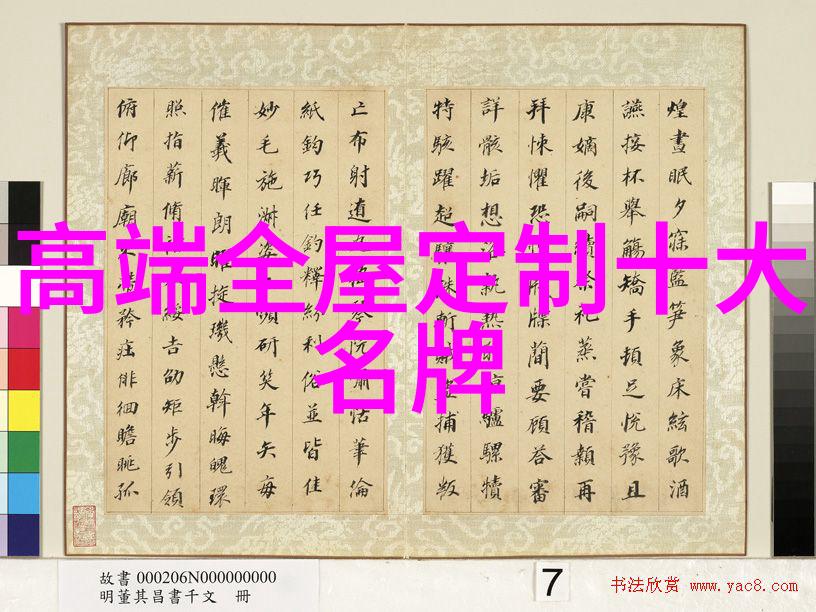 高端全屋定制十大
名牌
煌晝眠夕寐藍笋象床絃歌酒
讌接杯舉觴矯手頓足悅豫且
康嫡後嗣續祭祀蒸嘗稽顙再
拜悚懼恐牒簡要顧答審
詳骸垢想浴執熱驢騾犢
特駭躍超驤斬賊盜捕獲叛
亡布射遼阮嘯恬筆倫
紙鈞巧任釣釋紛利俗並皆佳
妙毛施淑姿妍笑年矢每
催羲暉朗曜旋璣懸斡晦魄環
照指薪脩綏吉劭矩步引領
俯仰廊廟矜莊徘徊瞻眺孤
故書 000206N000000000
明董其昌書千文 冊
7
书法欣赏 www.yac8.com